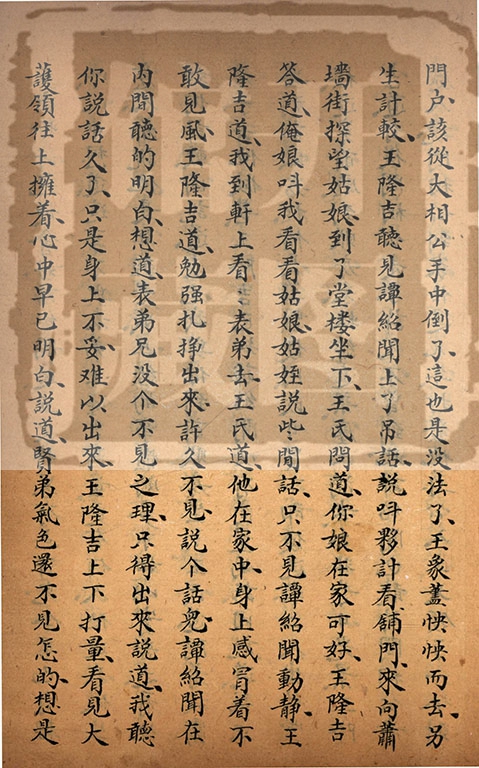 門户、該從大相公手中倒了、這也是没法了、王象藎怏怏而去、另
生計較、王隆吉聽見譚紹聞上了吊、話說呌夥計看舖門、來向蕭
墻街探望姑娘、到了堂楼坐下、王氏問道、你娘在家可好、王隆吉
答道、俺娘呌我看看姑娘、姑姪說些閒話、只不見譚紹聞動静、王
隆吉道、我到軒上看〻表弟去、王氏道、他在家中、身上感冒着不
敢見風、王隆吉道、勉强扎挣出來、許久不見、說个話兒、譚紹聞在
内間聽的明白、想道、表弟兄没个不見之理、只得出來說道、我聽
你說話久了、只是身上不妥、难以出來、王隆吉上下打量、看見大
護領往上擁着、心中早已明白、說道、賢弟氣色還不見怎的、想是